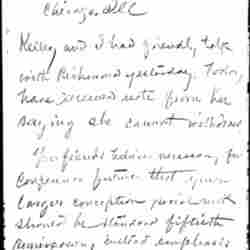 Chicago, Ill
Kelley and I had friendly talk
with Richmond yesterday. Today
have received note from her
saying she cannot withdraw
friends
conference further that your
larger conception
should be standard fiftieth
anniversary emphasis